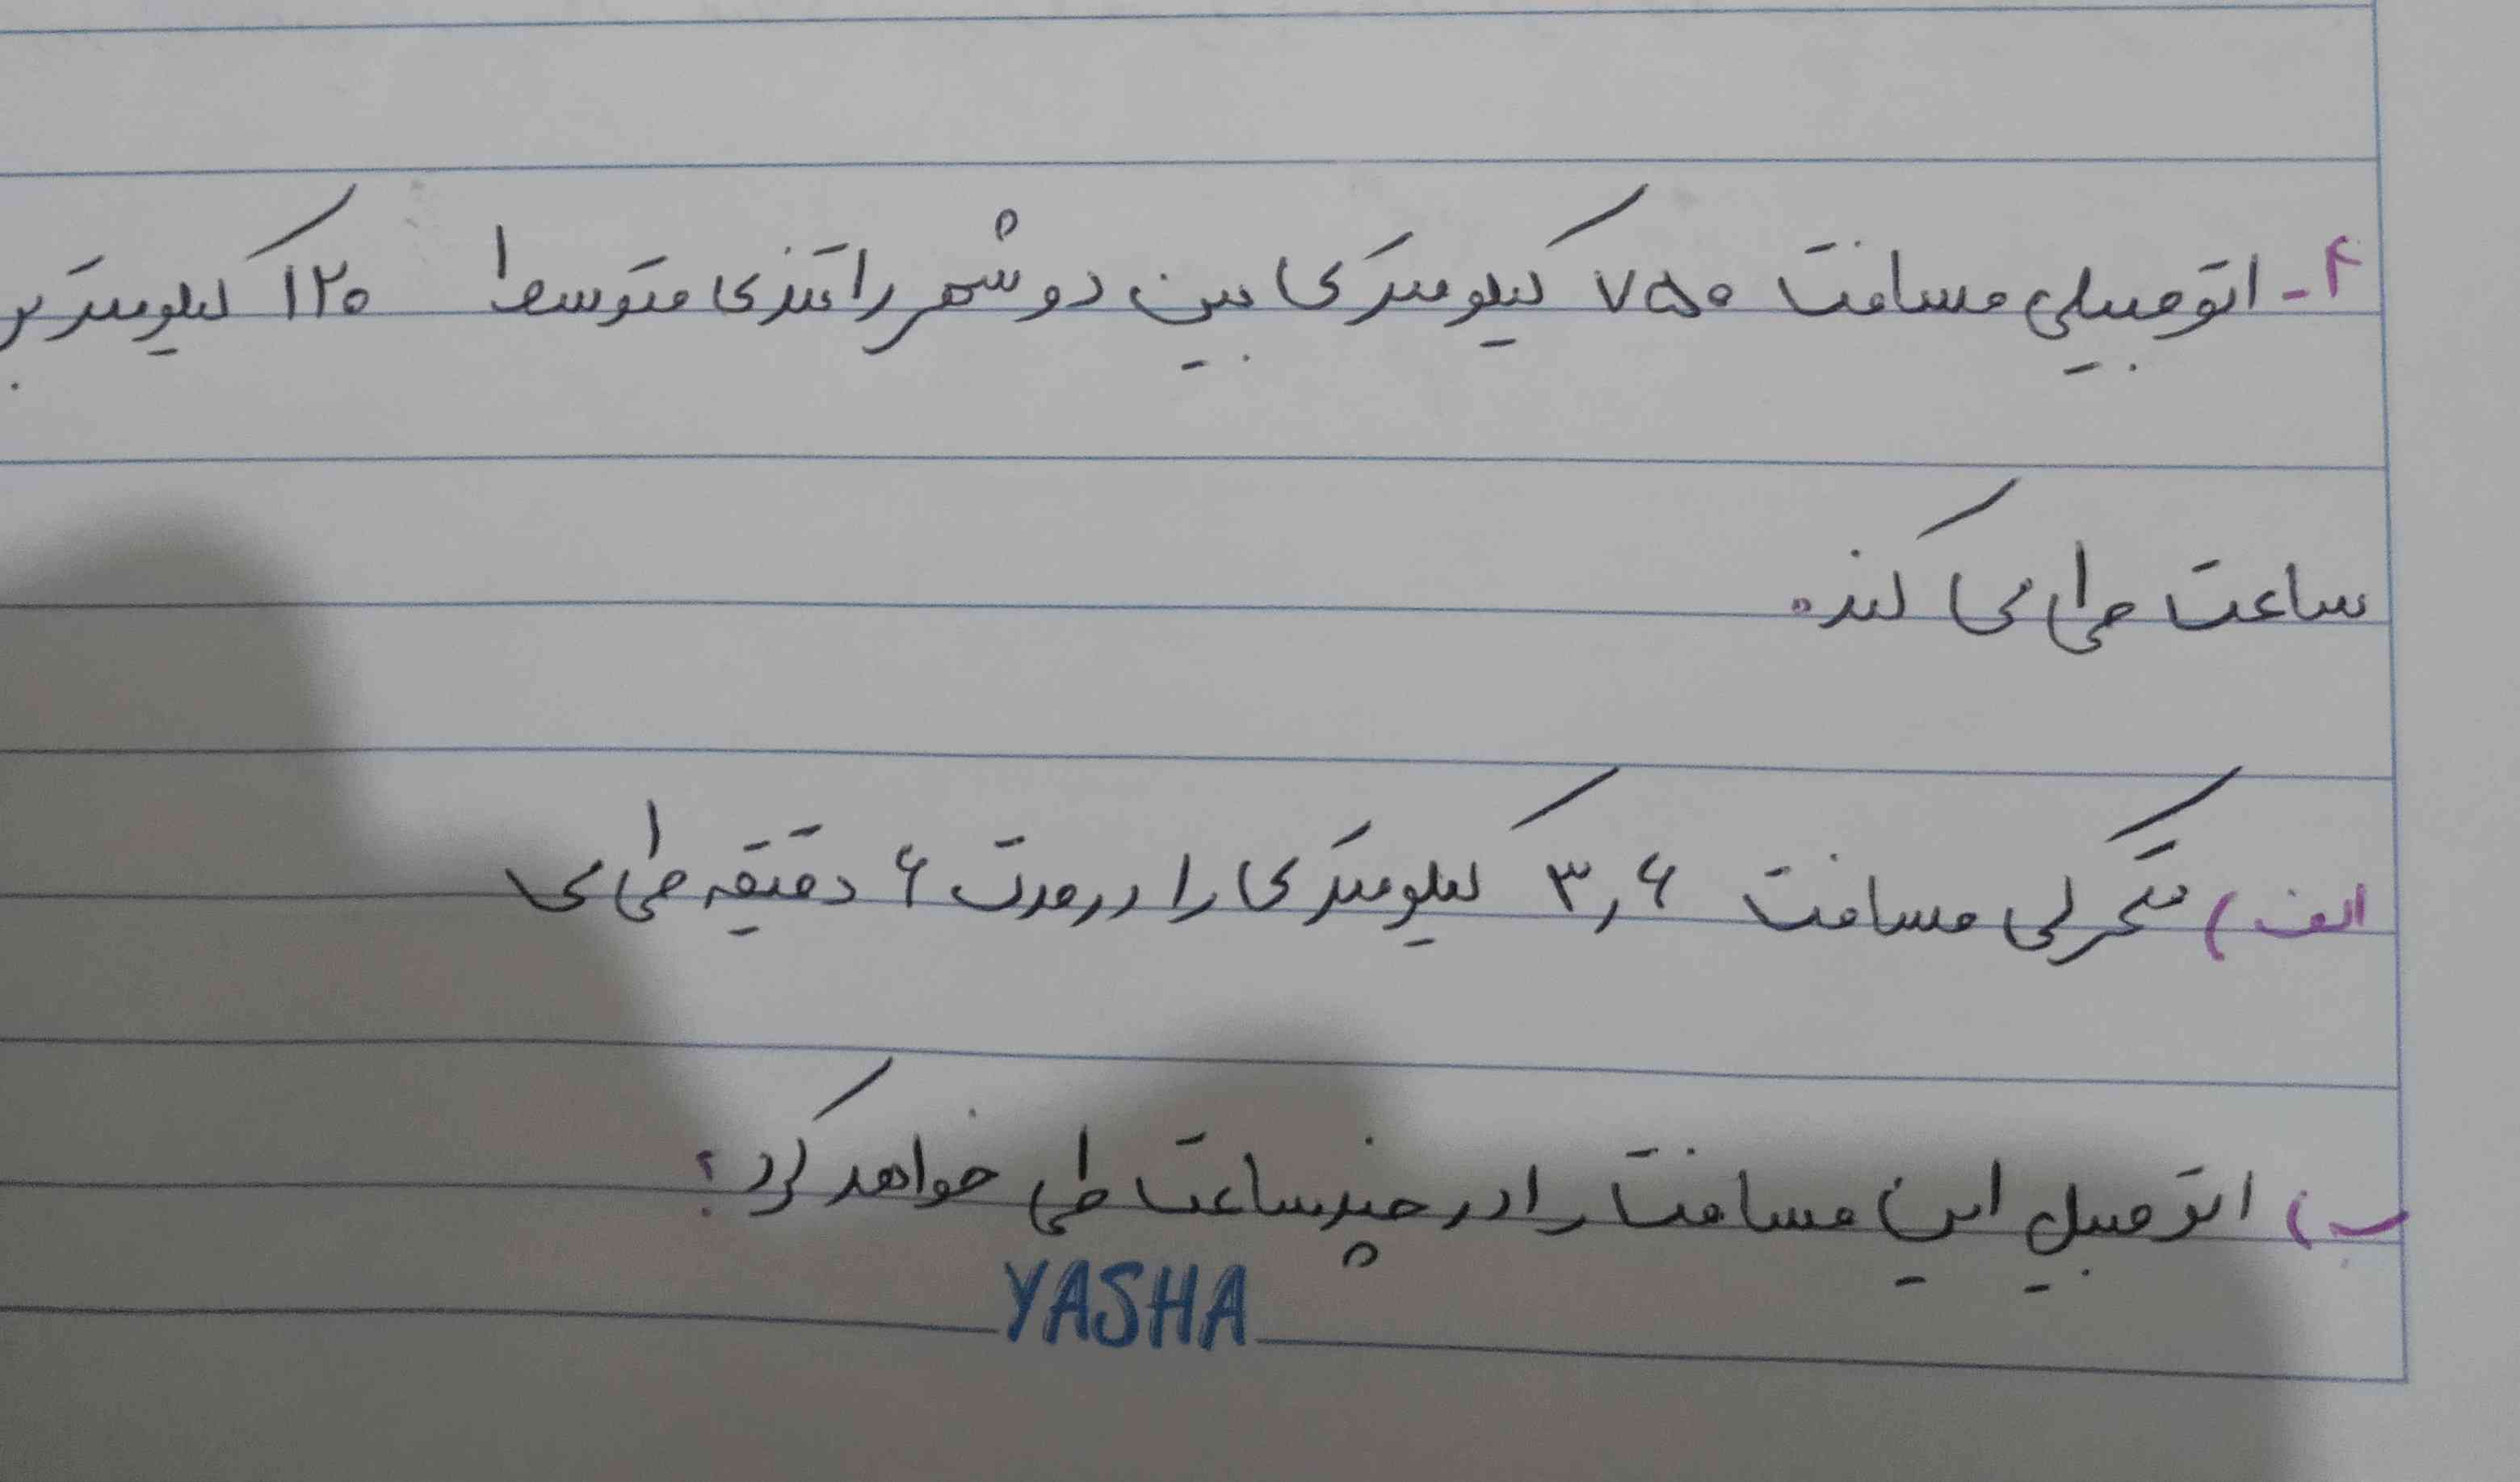 ۴- اتومبیلی مسافت ۷۵۰ کیلومتری بین دو شهر را تندی متوسط ۱۲۰ کیلومتر بر
ساعت طی می کند.
الف) متحرکی مسافت ۳٫۶ کیلومتری را در مدت ۶ دقیقه طی می
ب) اتومبیل این مسافت را در چند ساعت طی خواهد کرد؟
YASHA